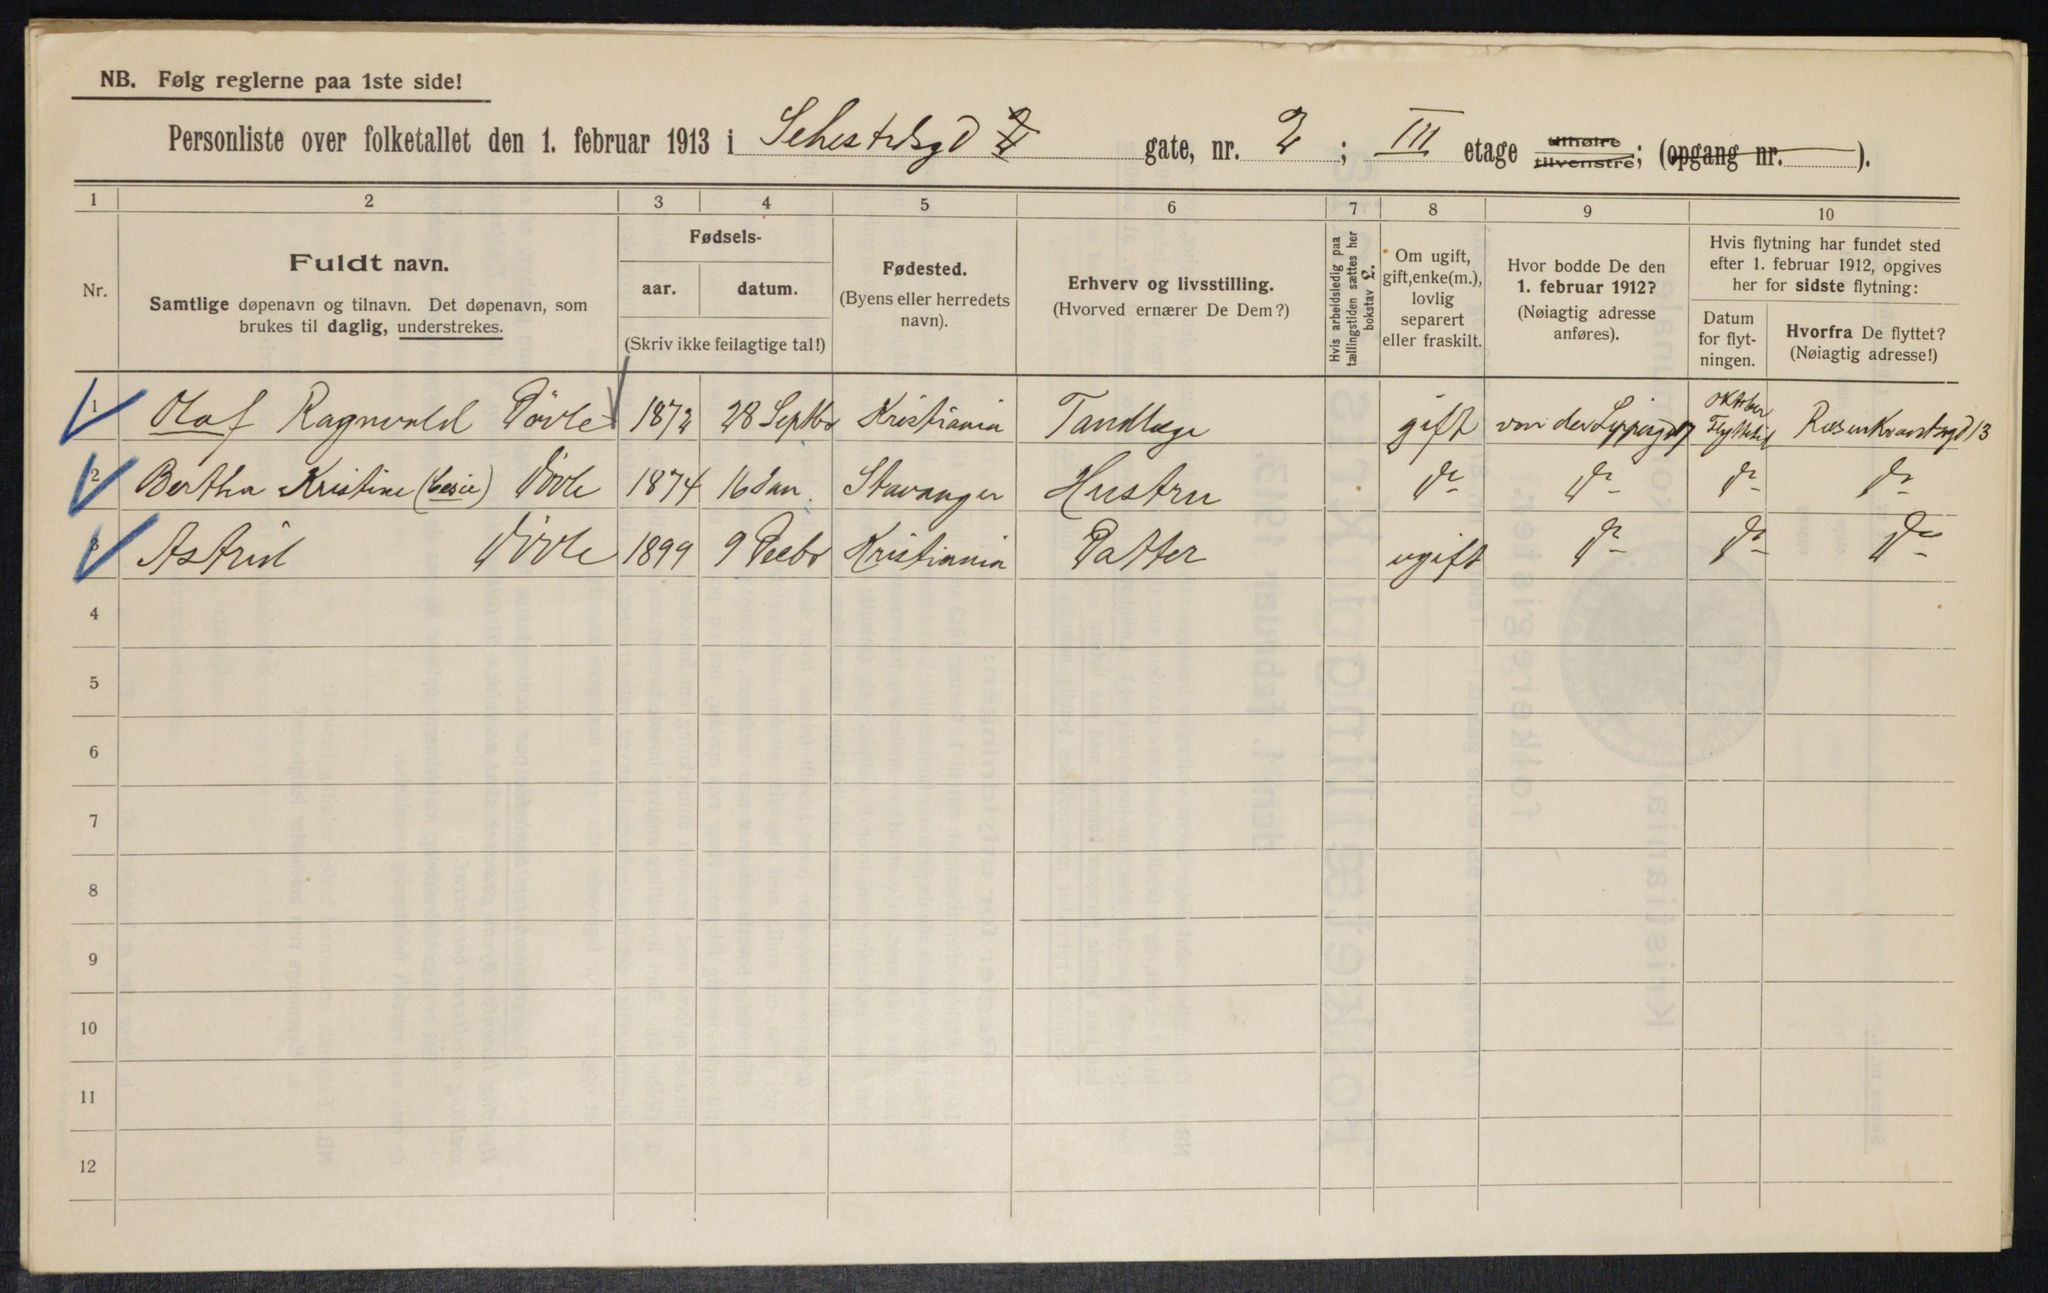 NB. Følg reglerne paa 1ste side!
Personliste over folketallet den 1. februar 1913 i Sehestedsgd gate, nr. 2 ; III etage tilhøire tilvenstre; (opgang nr. ).
1 2 3 4 5 6 7 8 9 10
Nr.
Fuldt navn.
Samtlige døpenavn og tilnavn. Det døpenavn, som
brukes til daglig, understrekes.
Fødsels-
aar. datum.
(Skriv ikke feilagtige tal!)
Fødested.
(Byens eller herredets
navn).
Erhverv og livsstilling.
(Hvorved ernærer De Dem?)
Hvis arbeidsledig paa
tællingstiden sættes her
bokstav L.
Om ugift,
gift, enke(m.),
lovlig
separert
eller fraskilt.
Hvor bodde De den
1. februar 1912?
(Nøiagtig adresse
anføres).
Hvis flytning har fundet sted
efter 1. februar 1912, opgives
her for sidste flytning:
Datum
for flyt-
ningen.
Hvorfra De flyttet?
(Nøiagtig adresse!)
1 Olaf Ragnvald Dövle 1872 28 Septbr Kristiania Tandlæge gift von der Lippesgd 17 Oktober Flyttetid Rosenkrantzgd 13
2 Bertha Kristine Dövle 1874 16 Jan. Stavanger Hustru do do do do
3 Astrid Dövle 1899 9 Decbr Kristiania Datter ugift do do do
4
5
6
7
8
9
10
11
12